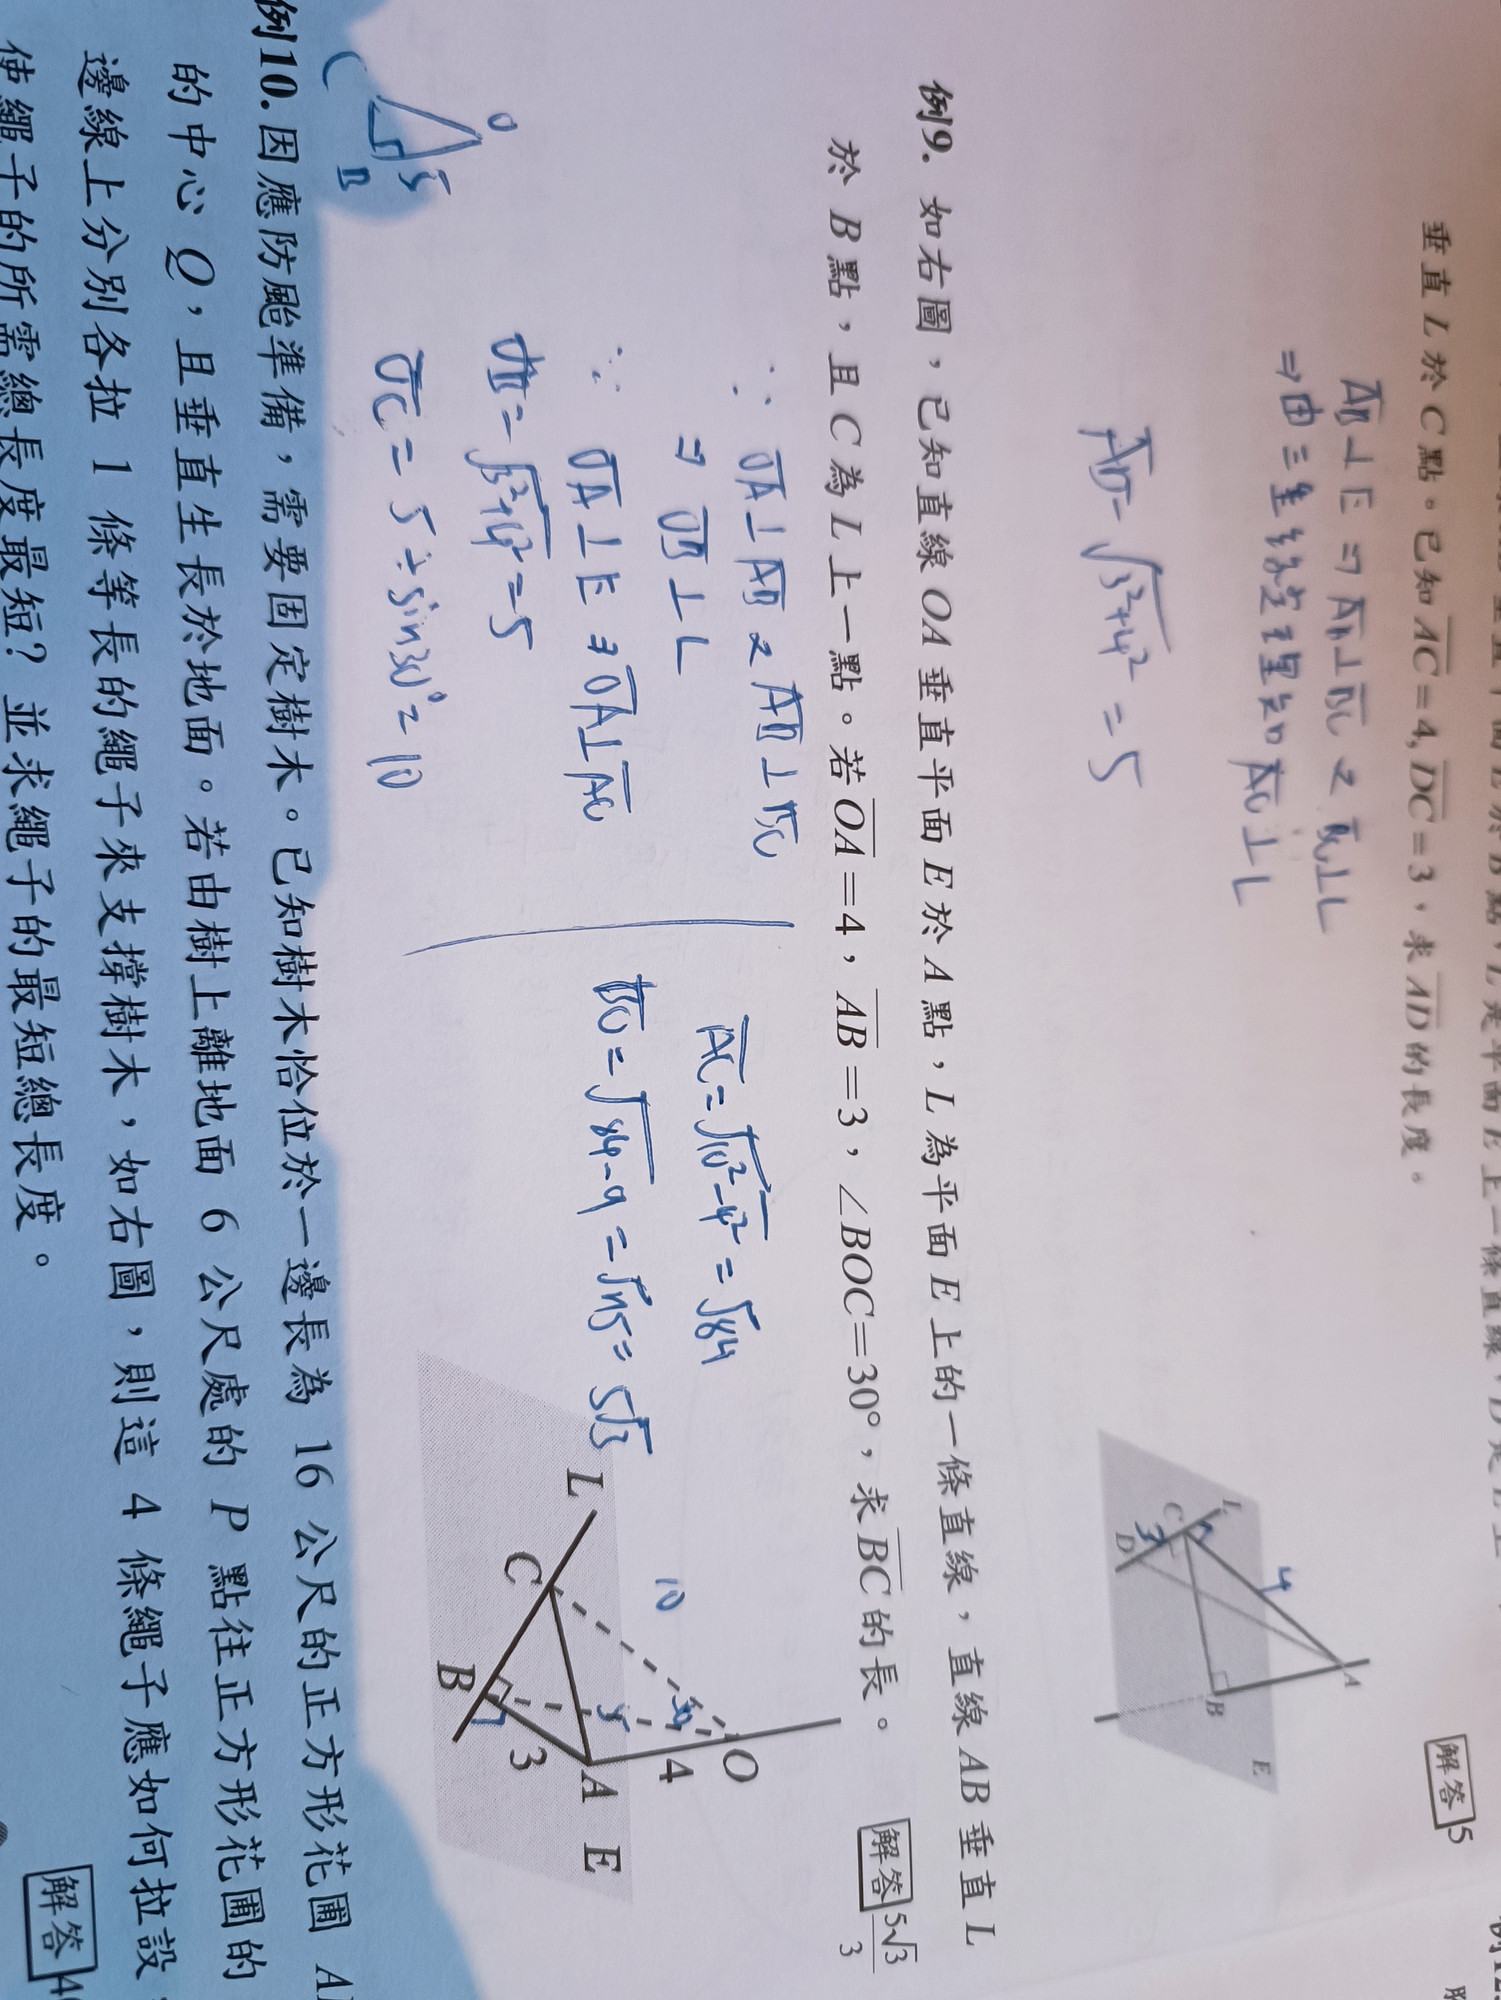 垂直 L 於 C 點。已知 AC=4, DC=3,求 AD 的長度。
解答 5
AB⊥E ⇒ AB⊥BC 又 BC⊥L
⇒由三垂線定理知 AC⊥L
AD=√3²+4² = 5
4
3
A
B
C
D
L
E
例9. 如右圖,已知直線 OA 垂直平面 E 於 A 點,L 為平面 E 上的一條直線,直線 AB 垂直 L
於 B 點,且 C 為 L 上一點。若 OA=4,AB=3,∠BOC=30°,求 BC 的長。
解答 5√3/3
∵ OA⊥AB 又 AB⊥BC
⇒ OB⊥L
∵ OA⊥E ⇒ OA⊥AC
OB=√3²+4²=5
OC = 5÷sin30°=10
AC=√10²-4² = √84
BC=√84-9 = √75= 5√3
O
5
B
C
10
30
5
O
4
A
E
3
B
C
L
例10. 因應防颱準備,需要固定樹木。已知樹木恰位於一邊長為 16 公尺的正方形花圃
的中心 Q,且垂直生長於地面。若由樹上離地面 6 公尺處的 P 點往正方形花圃的
邊線上分別各拉 1 條等長的繩子來支撐樹木,如右圖,則這 4 條繩子應如何拉設,
使繩子的所需總長度最短?並求繩子的最短總長度。
解答